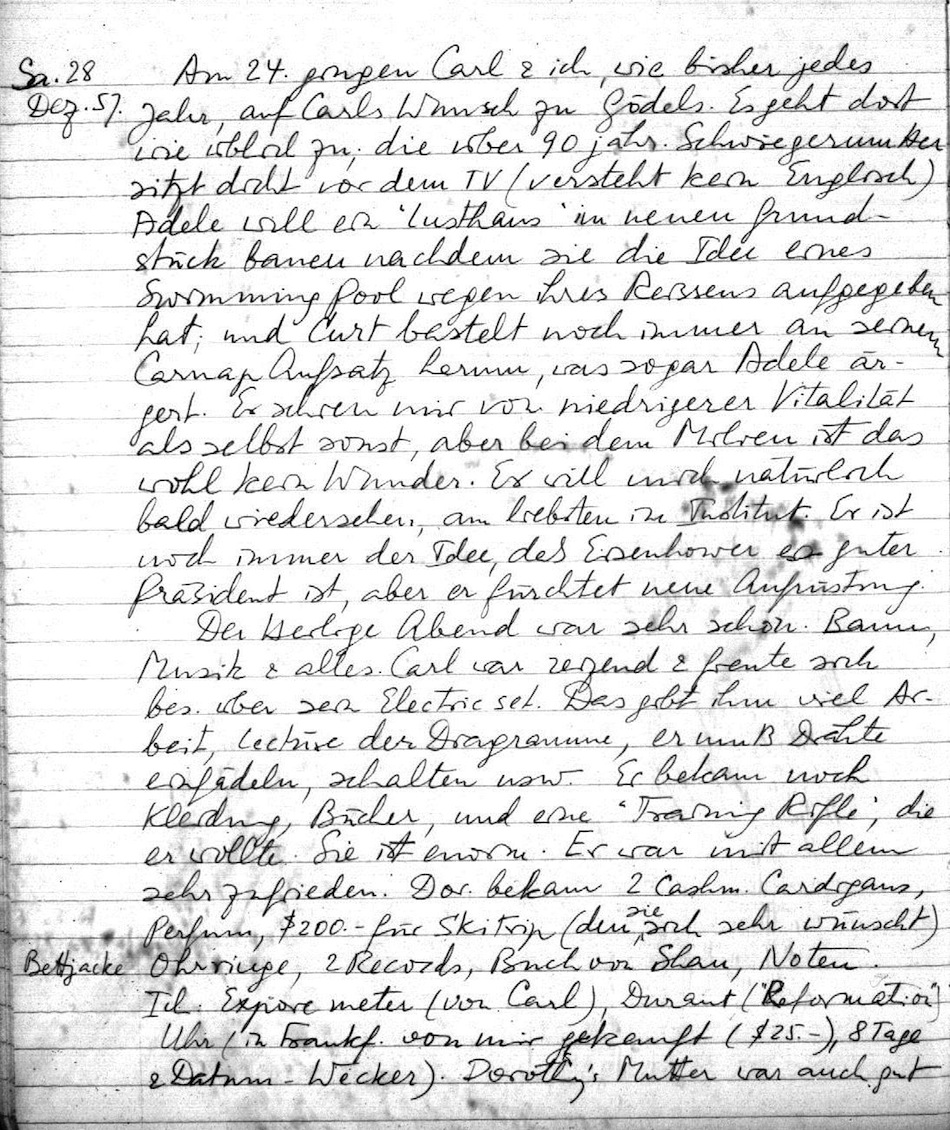 Sa. 28 Am 24. gingen Carl & ich, wie bisher jedes
Dez. 57. Jahr, auf Carls Wunsch zu Gödels. Es geht dort
wie üblich zu; die über 90 jähr. Schwiegermutter
sitzt dicht vor dem TV (versteht kein Englisch)
Adele will ein 'Lusthaus' im neuen Grund-
stück bauen nachdem sie die Idee eines
Swimming Pool wegen ihres Reissens aufgegeben
hat; und Curt bastelt noch immer an seinem
Carnap Aufsatz herum, was sogar Adele är-
gert. Er schien mir von niedrigerer Vitalität
als selbst sonst, aber bei dem Milieu ist das
wohl kein Wunder. Er will mich natürlich
bald wiedersehen, am liebsten im Institut. Er ist
noch immer der Idee, daß Eisenhower ein guter
Präsident ist, aber er fürchtet neue Aufrüstung.
Der Heilige Abend war sehr schön. Baum,
Musik & alles. Carl war reizend & freute sich
bes. über sein Electric set. Das gibt ihm viel Ar-
beit, Lectüre der Diagramme, er muß Drähte
einfädeln, schalten usw. Er bekam noch
Kleidung, Bücher, und eine 'Training Rifle', die
er wollte. Sie ist enorm. Er war mit allem
sehr zufrieden. Dor. bekam 2 Cashm. Cardigans,
Perfum, $200.- für Skitrip (den sie sich sehr wünscht)
Bettjacke Ohrringe, 2 Records, Buch von Shaw, Noten.
Ich: Exposure meter (von Carl), Durant ("Reformation")
Uhr (in Frankf. von mir gekauft ($25.-), 8 Tage
& Datum - Wecker). Dorothy's Mutter war auch gut